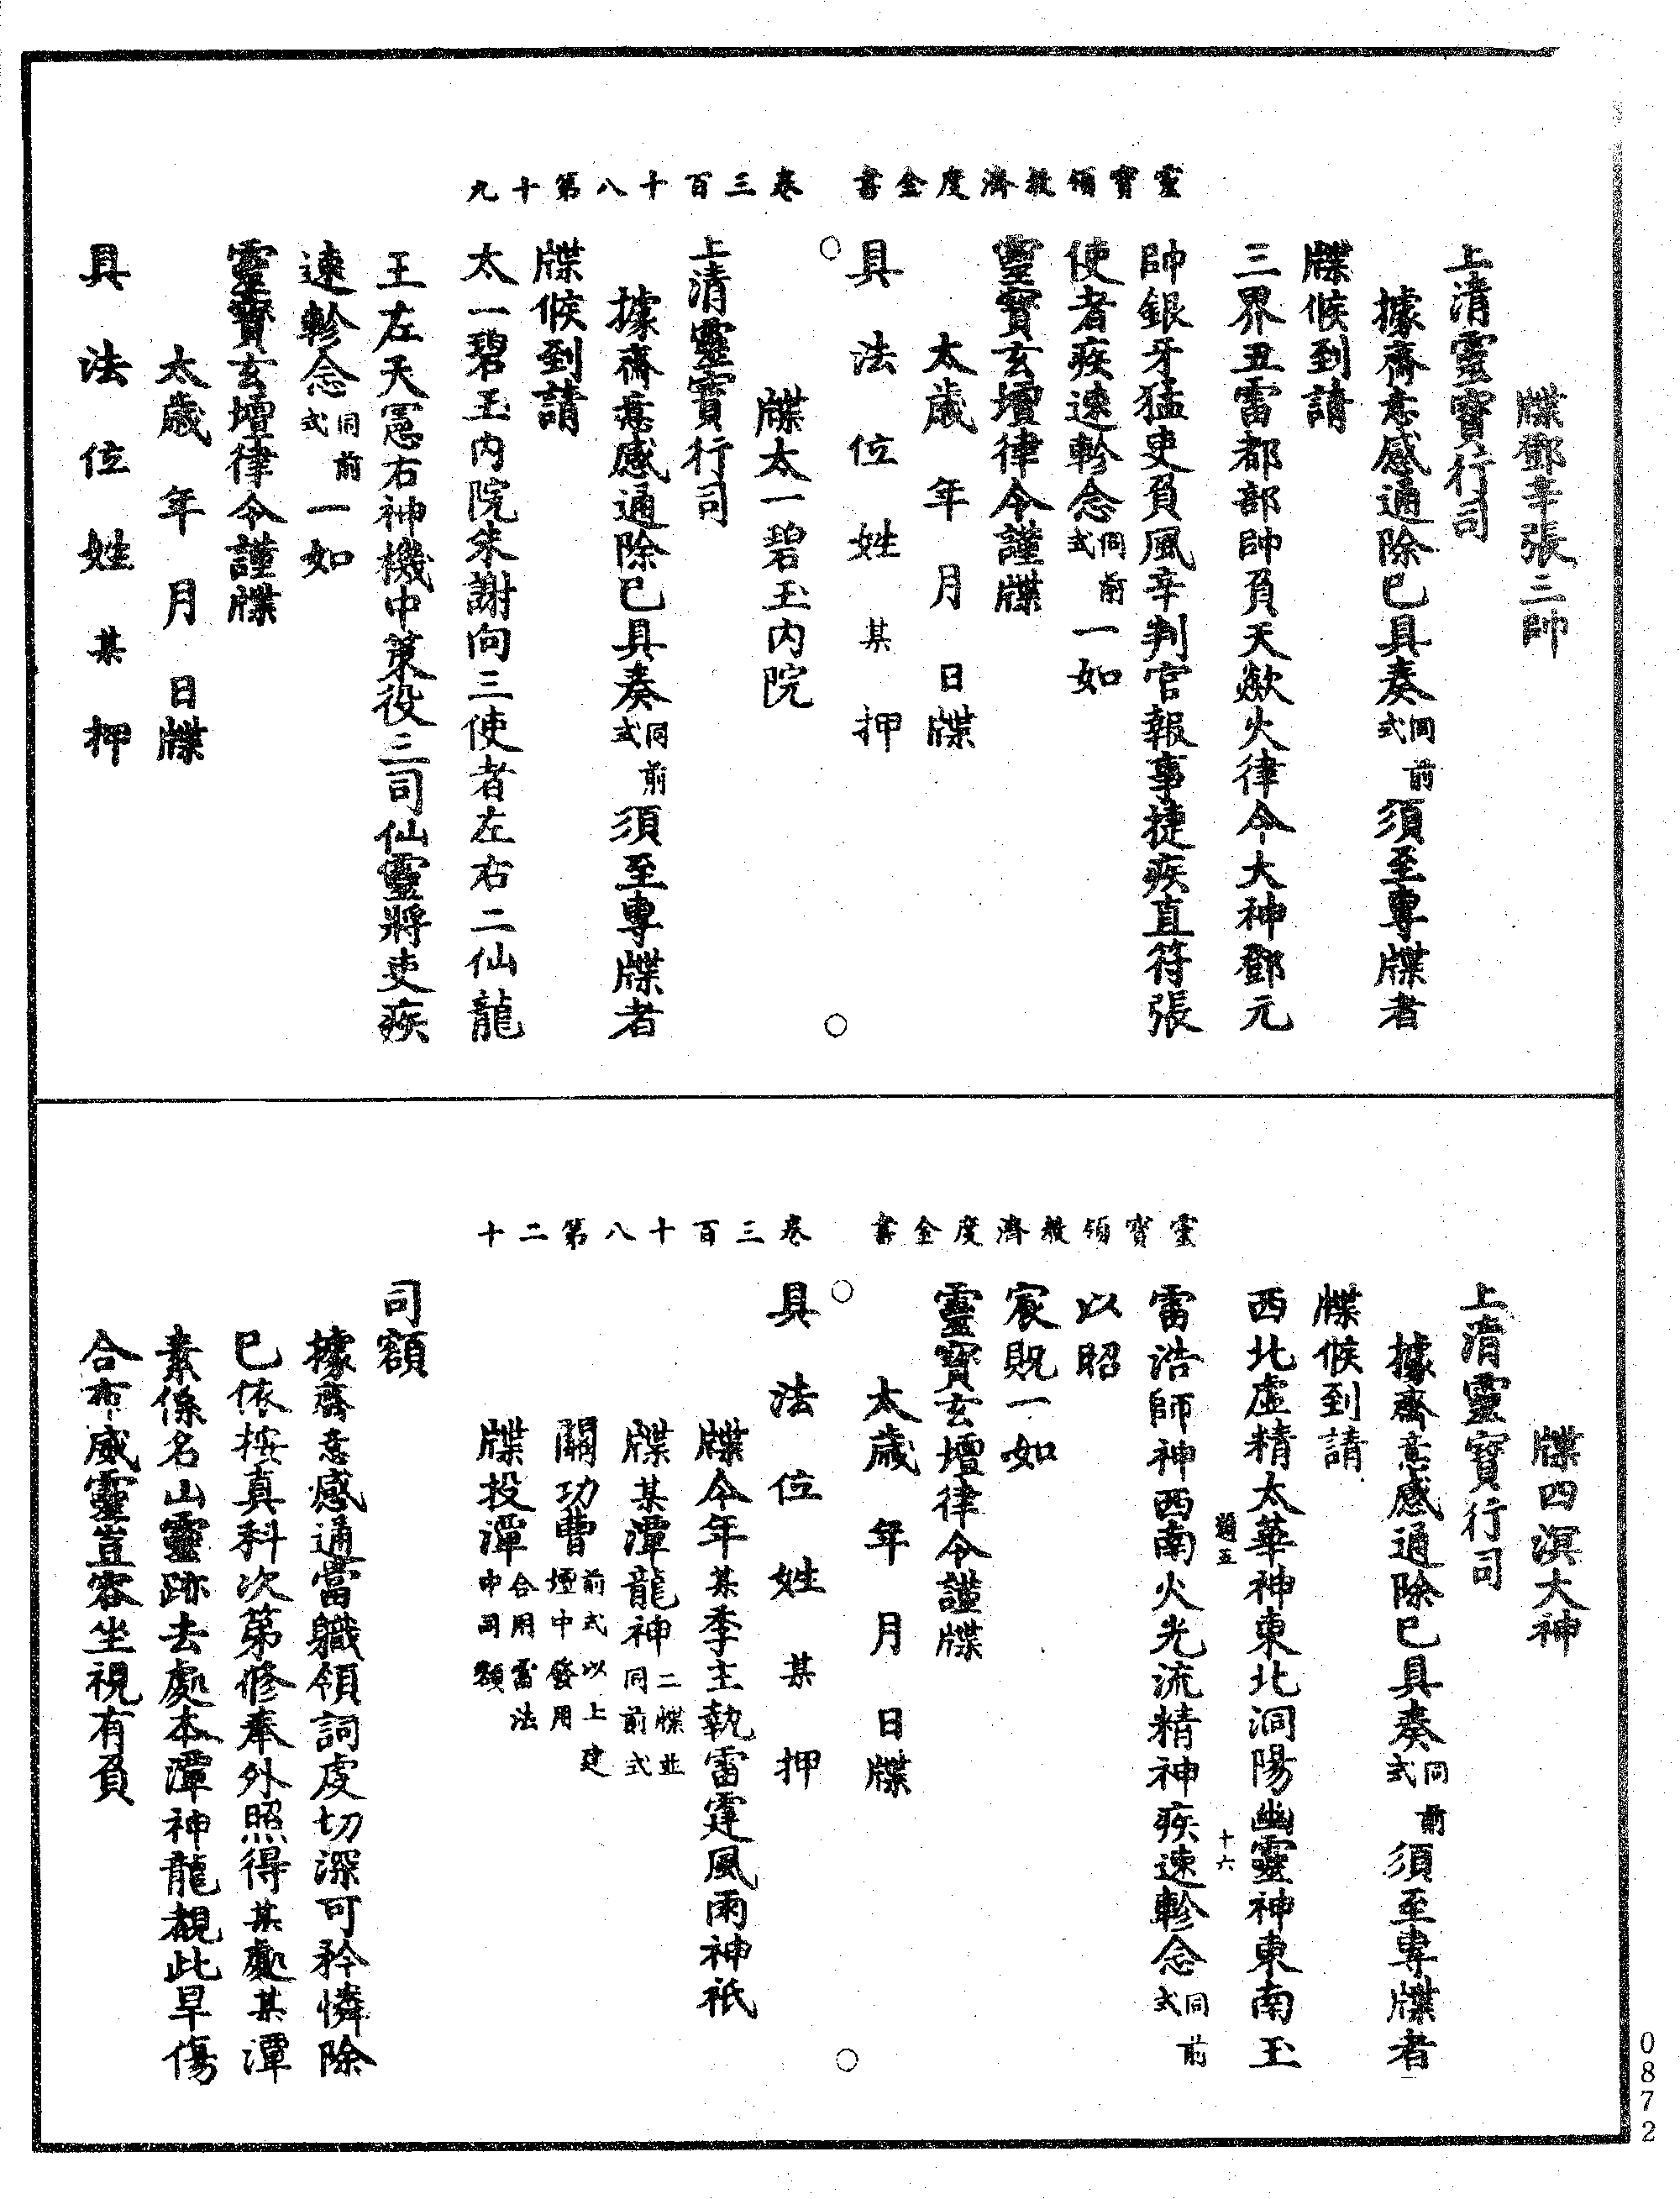 靈寶領教濟度金書　卷三百十八第十九
牒鄧辛張三帥
上清靈寶行司
據齋意感通除已具奏同前式須至專牒者
牒候到請
三界丑雷都部帥負天歘火律令大神鄧元
帥銀牙猛吏負風辛判官報事捷疾直符張
使者疾速軫念同前式一如
靈寶玄壇律令謹牒
太歲　年　月　日牒
具　法　位　姓　某　押
牒太一碧玉內院
上清靈寶行司
據齋意感通除已具奏同前式須至專牒者
牒候到請
太一碧玉內院朱謝向三使者左右二仙龍
王左天罡右神機中策役三司仙靈將吏疾
速軫念同前式一如
靈寶玄壇律令謹牒
太歲　年　月　日牒
具　法　位　姓　某　押
靈寶領教濟度金書　卷三百十八第二十
牒四溟大神
上清靈寶行司
據齋意感通除已具奏同前式須至專牒者
牒候到請
西北虛精太華神東北洞陽幽靈神東南玉
通五　十六
雷浩師神西南火光流精神疾速軫念同前式
以昭
宸貺一如
靈寶玄壇律令謹牒
太歲　年　月　日牒
具　法　位　姓　某　押
牒今年某季主執雷霆風雨神祇
牒某潭龍神二牒並同前式
關功曹前式以上建壇中發用
牒投潭合用雷法申司額
司額
據齋意感通當職領詞虔切深可矜憐除
已依按真科次第修奉外照得某處某潭
素係名山靈跡去處本潭神龍覩此旱傷
合布威靈豈容坐視有負
0872